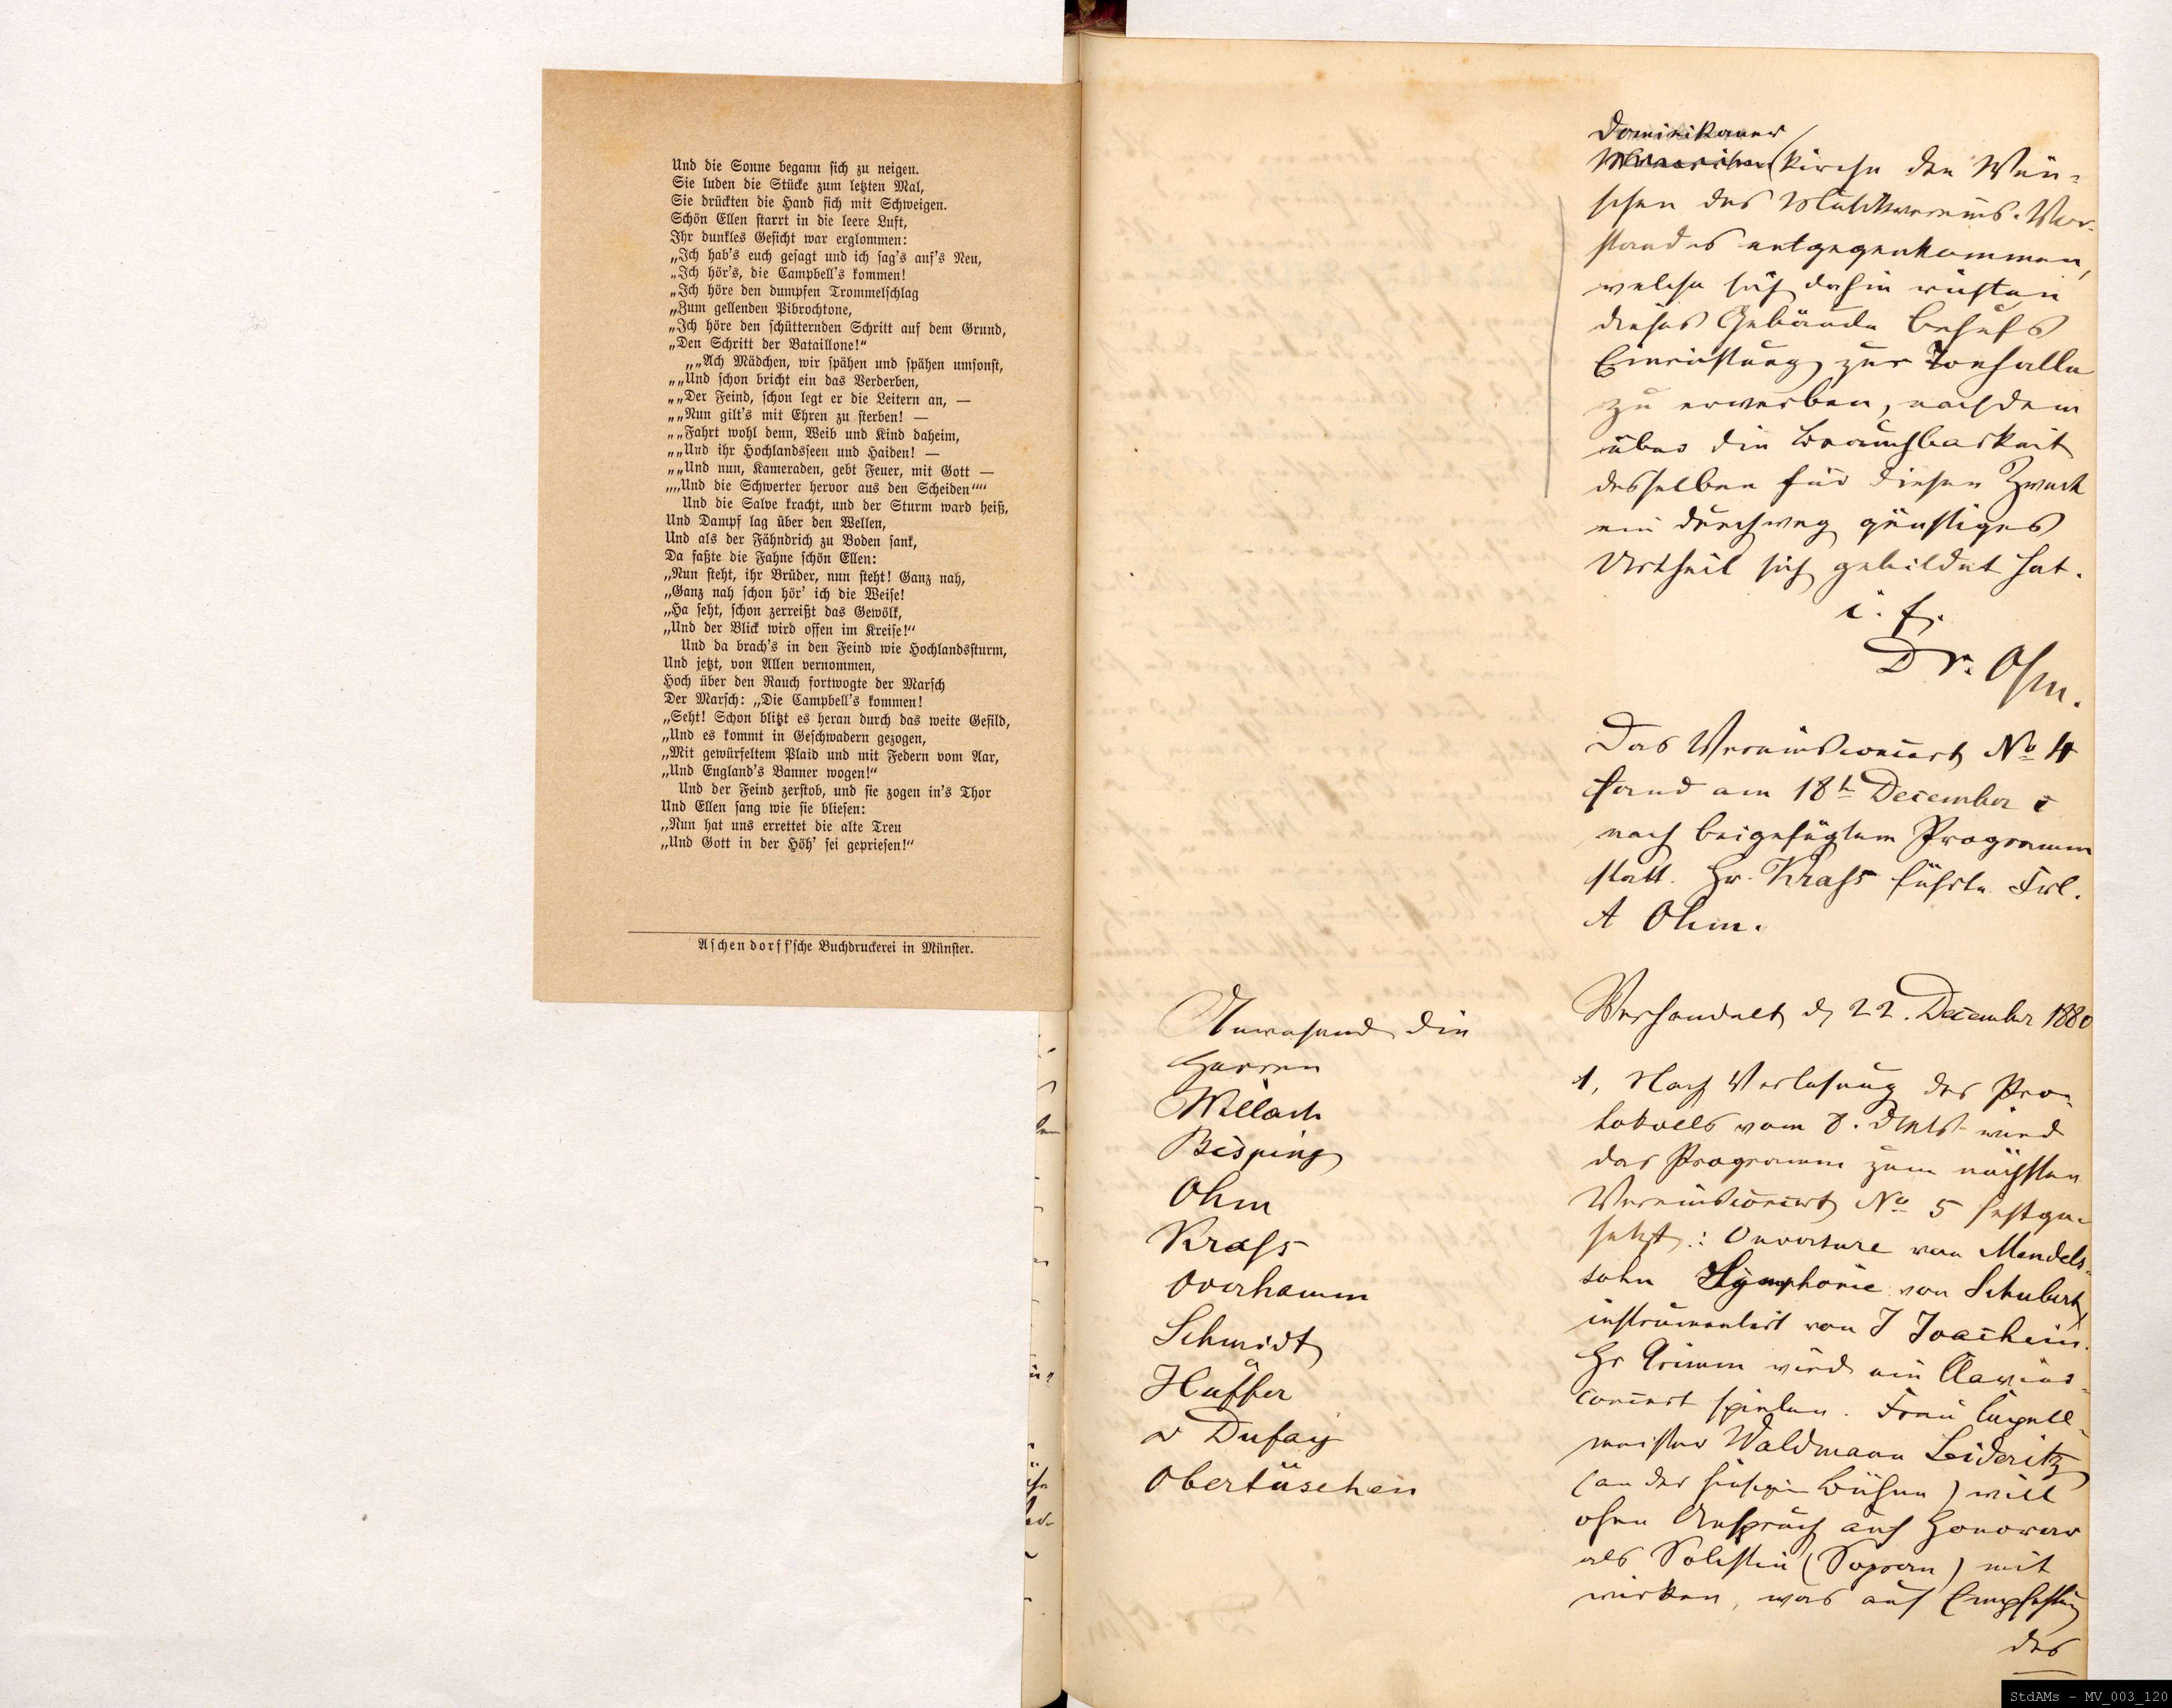 Und die Sonne begann sich zu neigen.
Sie luden die Stücke zum letzten Mal,
Sie drückten die Hand sich mit Schweigen.
Schön Ellen starrt in die leere Luft,
Ihr dunkles Gesicht war erglommen:
„Ich hab's euch gesagt und ich sag's auf's Neu,
„Ich hör's, die Campbell's kommen!
„Ich höre den dumpfen Trommelschlag
„Zum gellenden Pibrochtone,
„Ich höre den schütternden Schritt auf dem Grund,
„Den Schritt der Bataillone!“
„„Ach Mädchen, wir spähen und spähen umsonst,
„„Und schon bricht ein das Verderben,
„„Der Feind, schon legt er die Leitern an, —
„„Nun gilt's mit Ehren zu sterben! —
„„Fahrt wohl denn, Weib und Kind daheim,
„„Und ihr Hochlandsseen und Haiden! —
„„Und nun, Kameraden, gebt Feuer, mit Gott —
„„Und die Schwerter hervor aus den Scheiden““
Und die Salve kracht, und der Sturm ward heiß,
Und Dampf lag über den Wellen,
Und als der Fähndrich zu Boden sank,
Da faßte die Fahne schön Ellen:
„Nun steht, ihr Brüder, nun steht! Ganz nah,
„Ganz nah schon hör' ich die Weise!
„Ha seht, schon zerreißt das Gewölk,
„Und der Blick wird offen im Kreise!“
Und da brach's in den Feind wie Hochlandssturm,
Und jetzt, von Allen vernommen,
Hoch über den Rauch fortwogte der Marsch
Der Marsch: „Die Campbell's kommen!
„Seht! Schon blitzt es heran durch das weite Gefild,
„Und es kommt in Geschwadern gezogen,
„Mit gewürfeltem Plaid und mit Federn vom Aar,
„Und England's Banner wogen!“
Und der Feind zerstob, und sie zogen in's Thor
Und Ellen sang wie sie bliesen:
„Nun hat uns errettet die alte Treu
„Und Gott in der Höh' sei gepriesen!“
Aschendorff'sche Buchdruckerei in Münster.
Dominikaner
kirche den Wün-
schen des Musikvereins-Vor-
standes entgegenkommen,
welche sich dahin richten
dieses Gebäude behufs
Einrichtung zur Tonhalle
zu erwerben, nachdem
über die Brauchbarkeit
desselben für diesen Zweck
ein durchweg günstiges
Urtheil sich gebildet hat.
i. f.
Dr. Ohm.
Das Vereinsconcert No 4
fand am 18t December
nach beigefügtem Programm
statt. Hr. Krass führte Frl.
A Ohm.
Anwesend die
Herren
Willach
Bisping
Ohm
Krass
Overhamm
Schmidt
Hüffer
v Dufay
Obertüschen
Verhandelt d 22. December 1880
1, Nach Verlesung des Pro-
tokolls vom 8. dMts wird
das Programm zum nächsten
Vereinsconcert No 5 festge-
setzt: Ouverture von Mendels-
sohn Symphonie von Schubert
instrumentirt von J Joachim.
Hr Grimm wird ein Clavier-
concert spielen. Frau Capell-
meister Waldmann Leideritz
(an der hiesigen Bühne) will
ohne Anspruch auf Honorar
als Solistin (Sopran) mit
wirken, was auf Empfehlung
des
StdAMs - MV_003_120